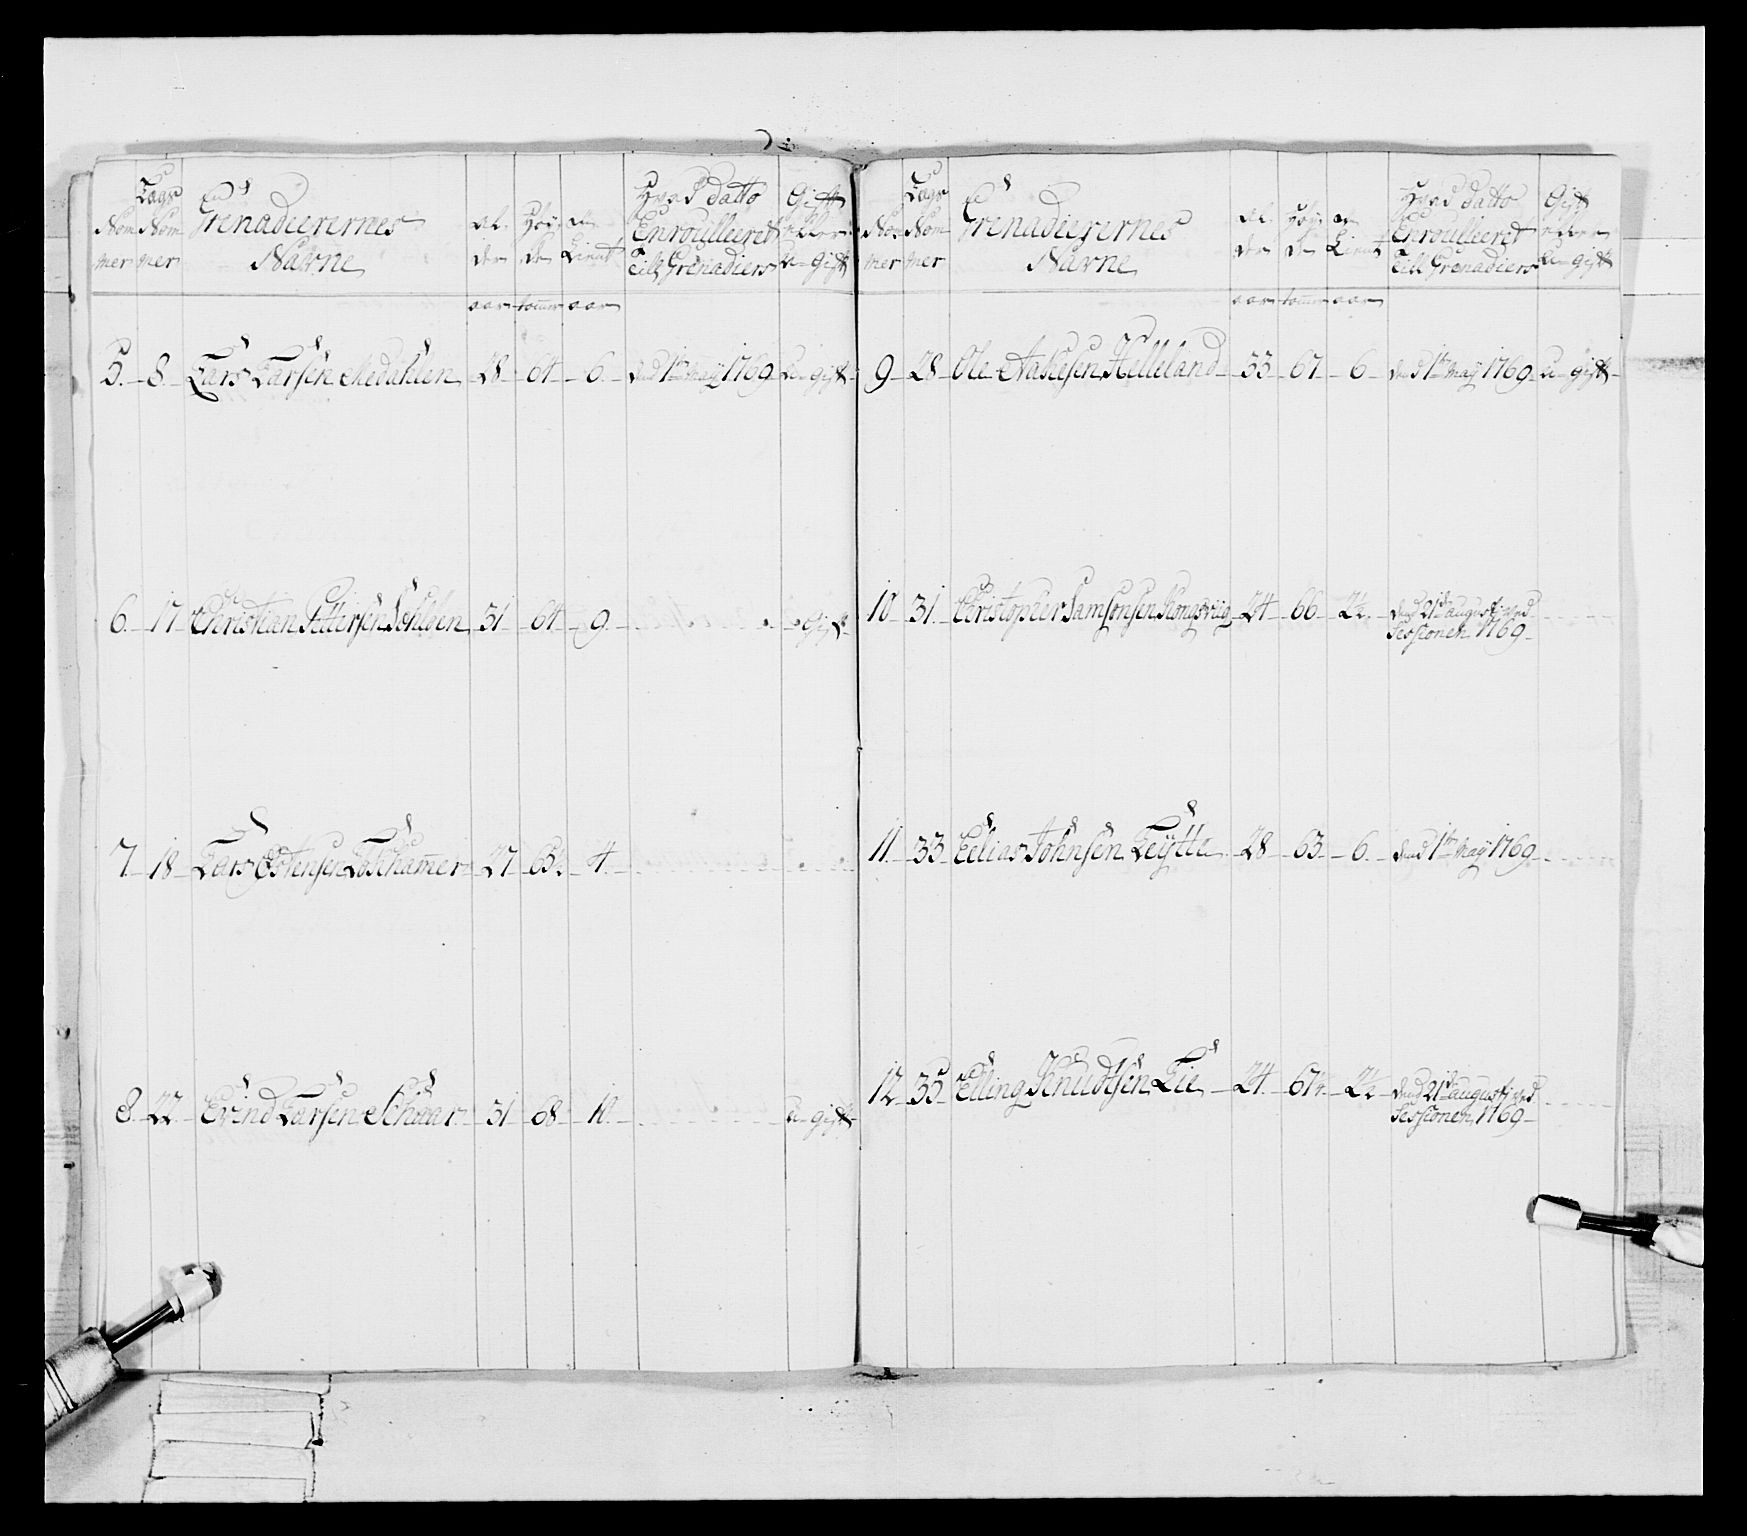 Nommer
Lægs Nommer
Grenadeerernes Navne
Alder
Høyde
en Tient
Hvad datto Enroulleeret till Grenadiers
Gift eller U-gift
aar tomr aar
5. 8. Lars Larsen Medahlen 28 64 6. den 1te May 1769 U-gift
6. 17 Christian Pittersen Dohlen 31 64 9. gift
7. 18 Lars Ostensen Loshamer 27 65½ 4.
8. 22. Evind Larsen Schaar 31 68 10. u-gift
Nommer
Lægs Nommer
Grenadeerernes Navne
Alder
Høyde
en Tient
Hvad datto Enroulleeret till Grenadiers
Gift eller U-gift
aar tomr aar
9 28 Ole Aslresen Helleland 33 67 6 den 1te May 1769 u-gift
10 31. Christopher Samsonsen Kongsviig 24 66 2½ den 21de august ved
Sessionen 1769
11. 33 Eelias Johnsen Leytte 28 63 6. dend 1te May 1769
12. 35 Elling Knudtsen Lie 24. 67¼ 2½ dend 21de august ved
Sessionen 1769